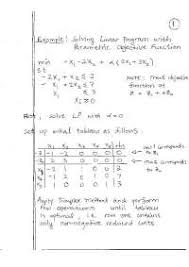 1
Example: Solving Linear Program with
Parametric Objective Function
min -x₁ - 2x₂ + α(2x₁ + 3x₂)
st
-2x₁ + x₂ ≤ 2
-x₁ + x₂ ≤ 7
x₁ ≤ 3
xᵢ ≥ 0
Note: read objective
function as
Z = Z₁ + αZ₂
First: solve LP with α=0
Set up initial tableau as follows
x₁ x₂ x₃ x₄ x₅ rhs
-1 -2 0 0 0 0
2 3 0 0 0 0
-2 1 1 0 0 2
-1 0 1 0 7
1 0 0 0 1 3
row 1 corresponds
to Z₁
row 2 corresponds
to Z₂
Apply Simplex method and perform
row operations until tableau
is optimal i.e. row one contains
only non-negative reduced costs